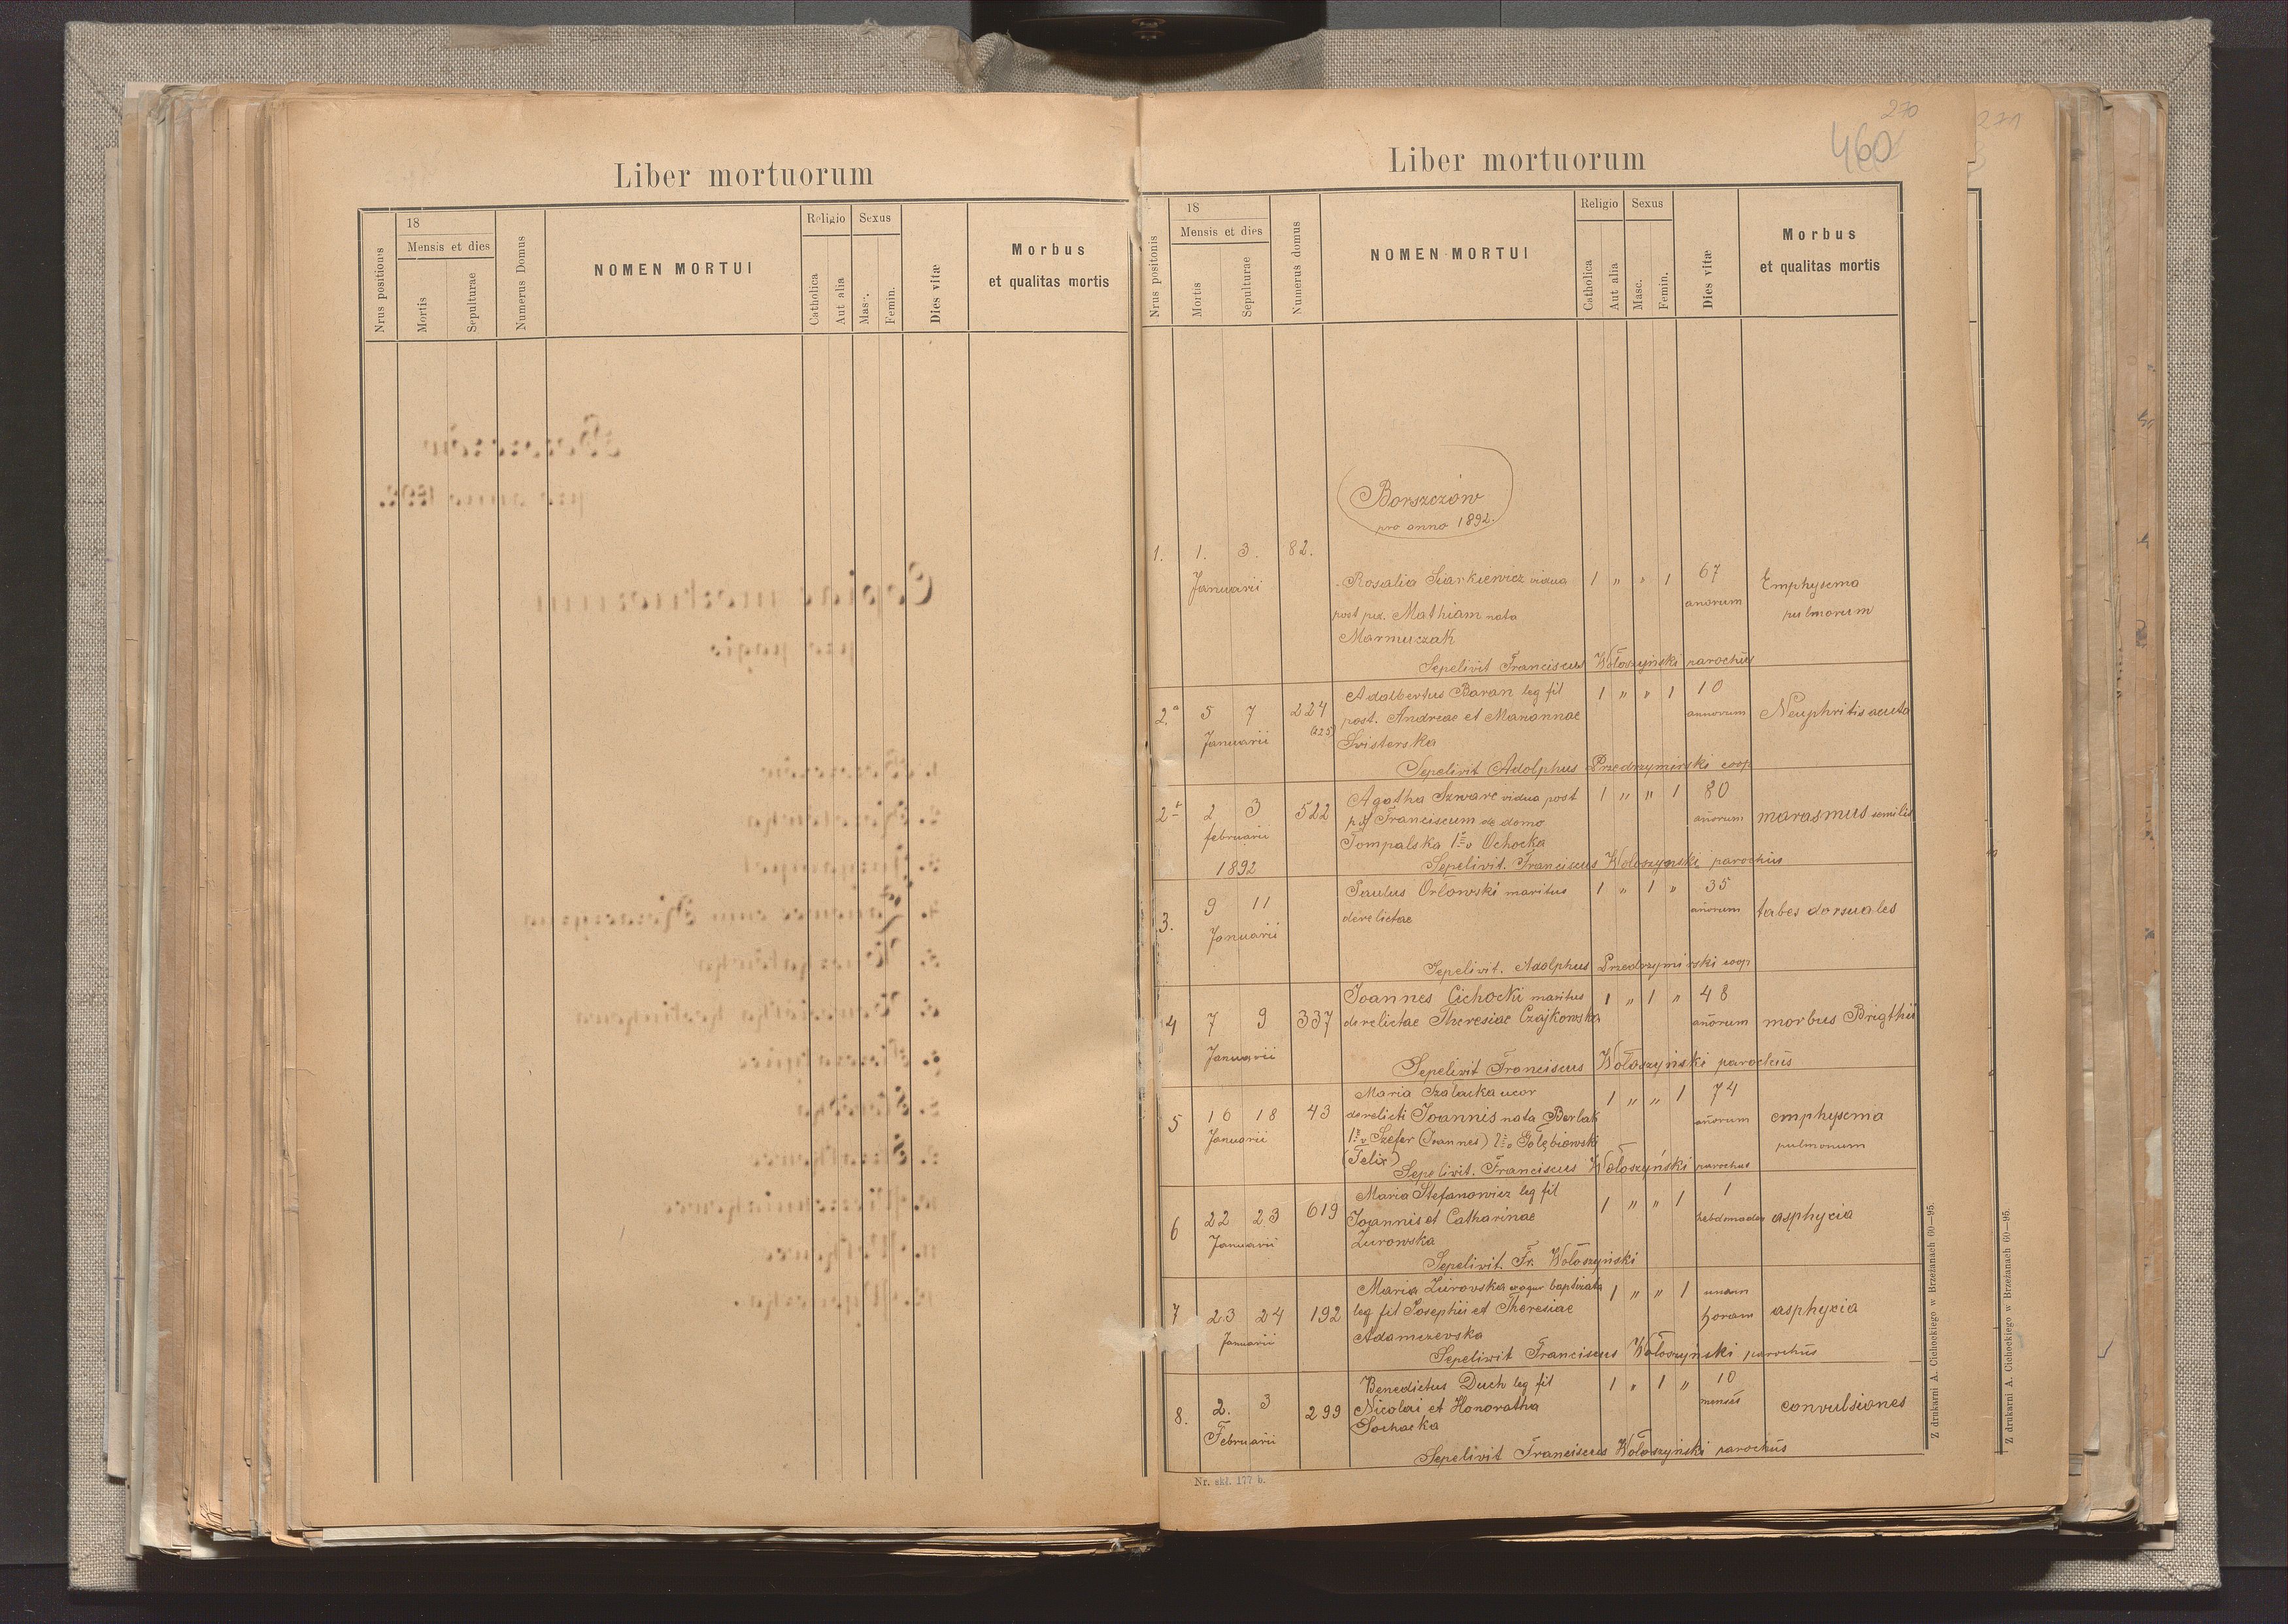 Liber mortuorum
Nrus positiones
18
Mensis et dies
Mortis
Sepulturae
Numerus Domus
NOMEN MORTUI
Religio
Catholica
Aut alia
Sexus
Masc.
Femin.
Dies vitæ
Morbus
et qualitas mortis
270
460
271
Liber mortuorum
Nrus positonis
18
Mensis et dies
Mortis
Sepulturae
Numerus domus
NOMEN MORTUI
Religio
Catholica
Aut alia
Sexus
Masc.
Femin.
Dies vitæ
Morbus
et qualitas mortis
Borszczów
pro anno 1892.
1. 1. 3. 82.
Januarii
Rosalia Siarkiewicz vidua 1 " " 1 67 Emphysema
anorum pulmorum
post Mathiam nata
Marmuczak
Sepelivit Franciscus Wołoszyński parochus
2a 5 7 224 Adalbertus Baran leg fil 1 " " 1 10
Januarii (225) post. Andreae et Mariannae annorum Neuphritis acuta
Svisterska
Sepelivit Adolphus Przedrzymirski coop
2 2 3 522 Agatha Szwarc vidua post 1 " " 1 80
februarii Franciscum de domo añorum marasmus senilis
Tompalska 1o Ochocka
1892 Sepelivit. Franciscus Wołoszynski parochus
3. 9 11 Paulus Orłowski maritus 1 " 1 " 35
Januarii derelictae añorum tabes dorsuales
Sepelivit. Adolphus Przedrzymirski coop
4 7 9 337 Joannes Cichocki maritus 1 " 1 " 48
Januarii derelictae Theresiae Czajkowska añorum morbus Brigthii
Sepelivit Franciscus Wołoszyński parochus
5 16 18 43 Maria Szałacka uxor 1 " " 1 74
Januarii derelicti Joannis nata Berlak añorum emphysema
1o v Szefer (Joannes) 2o Gołębiowski pulmonum
(Felix)
Sepelivit. Franciscus Wołoszyński parochus
6 22 23 619 Maria Stefanowicz leg fil 1 " " 1 1
Januarii Joannis et Catharinae hebdomadae asphyxia
Zurowska
Sepelivit. Fr. Wołoszyński
7 23 24 192 Maria Zurovska baptizata 1 " " 1 unam
Januarii leg fil Josephii et Theresiae horam asphyxia
Adamczevska
Sepelivit Franciscus Wołoszyński parochus
8. 2. 3 299 Benedictus Duch leg fil 1 " 1 " 10
Februarii Nicolai et Honoratha menses convulsiones
Sochacka
Sepelivit Franciscus Wołoszyński parochus
Nr. skł. 177 b.
Z drukarni A. Cichockiego w Brzeżanach 60—95.
Z drukarni A. Cichockiego w Brzeżanach 60—95.